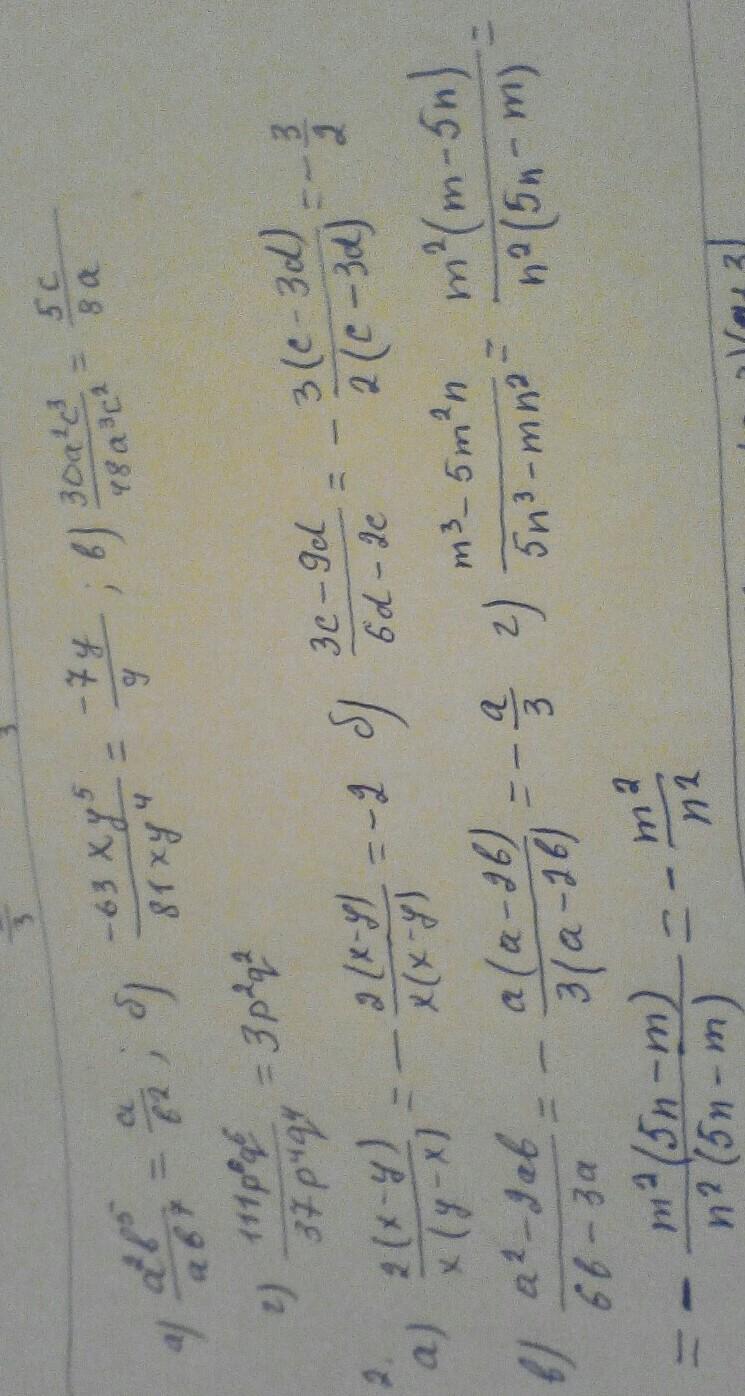 а) a²b⁵/ab⁷ = a/b²; б) -63xy⁵/81xy⁴ = -7y/9; в) 30a²c³/48a³c² = 5c/8a
г) 111p⁶q⁶/37p⁴q⁴ = 3p²q²
2.
а) 2(x-y)/x(y-x) = - 2(x-y)/x(x-y) = -2 б) 3c-9d/6d-2c = - 3(c-3d)/2(c-3d) = - 3/2
в) a²-2ab/6b-3a = - a(a-2b)/3(a-2b) = - a/3 г) m³-5m²n/5n³-mn² = m²(m-5n)/n²(5n-m) =
= - m²(5n-m)/n²(5n-m) = - m²/n²